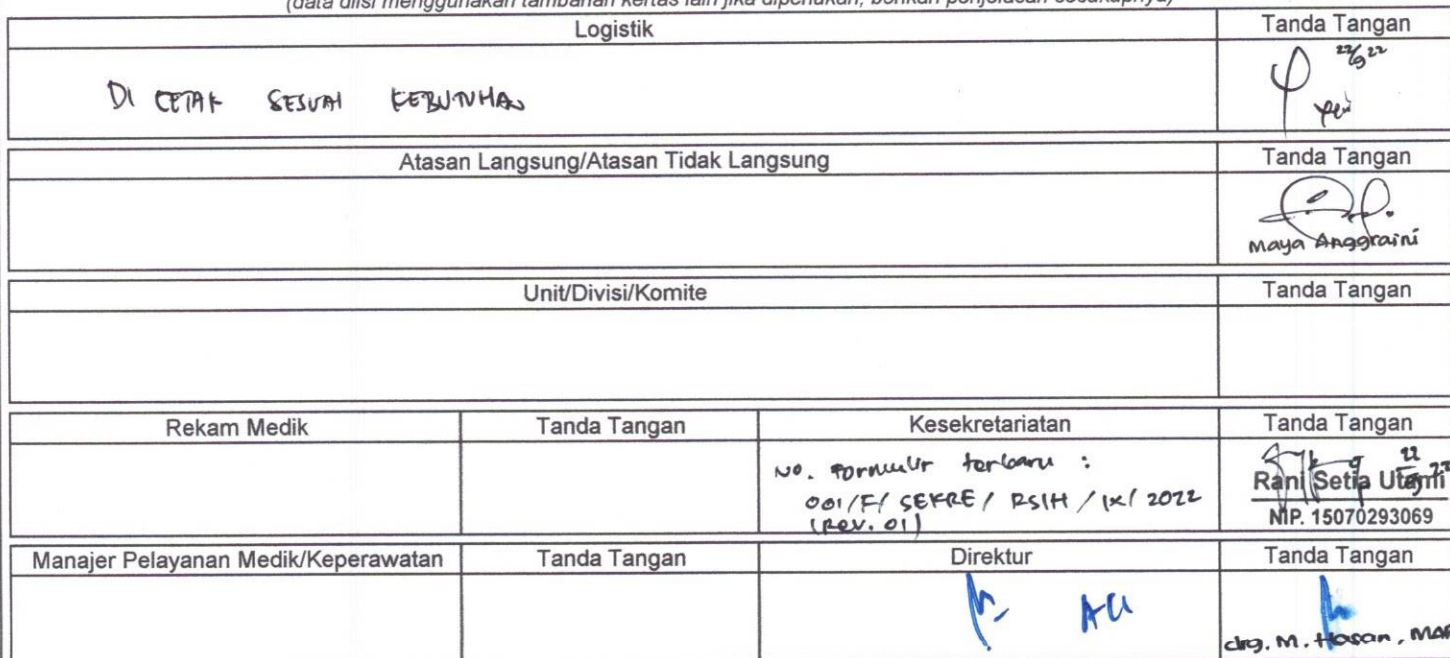 (data diisi menggunakan tambahan kertas lain jika diperlukan, berikan penjelasan secukupnya)
Logistik Tanda Tangan
22/9 22
DI CETAK SESUAI KEBUTUHAN
Atasan Langsung/Atasan Tidak Langsung Tanda Tangan
Maya Anggraini
Unit/Divisi/Komite Tanda Tangan
Rekam Medik Tanda Tangan Kesekretariatan Tanda Tangan
No. Formulir terbaru :
001/F/ SEKRE / RSIH / IX / 2022
(Rev. 01)
Rani Setia Utami
NIP. 15070293069
Manajer Pelayanan Medik/Keperawatan Tanda Tangan Direktur Tanda Tangan
drg. M. Hasan, MAR